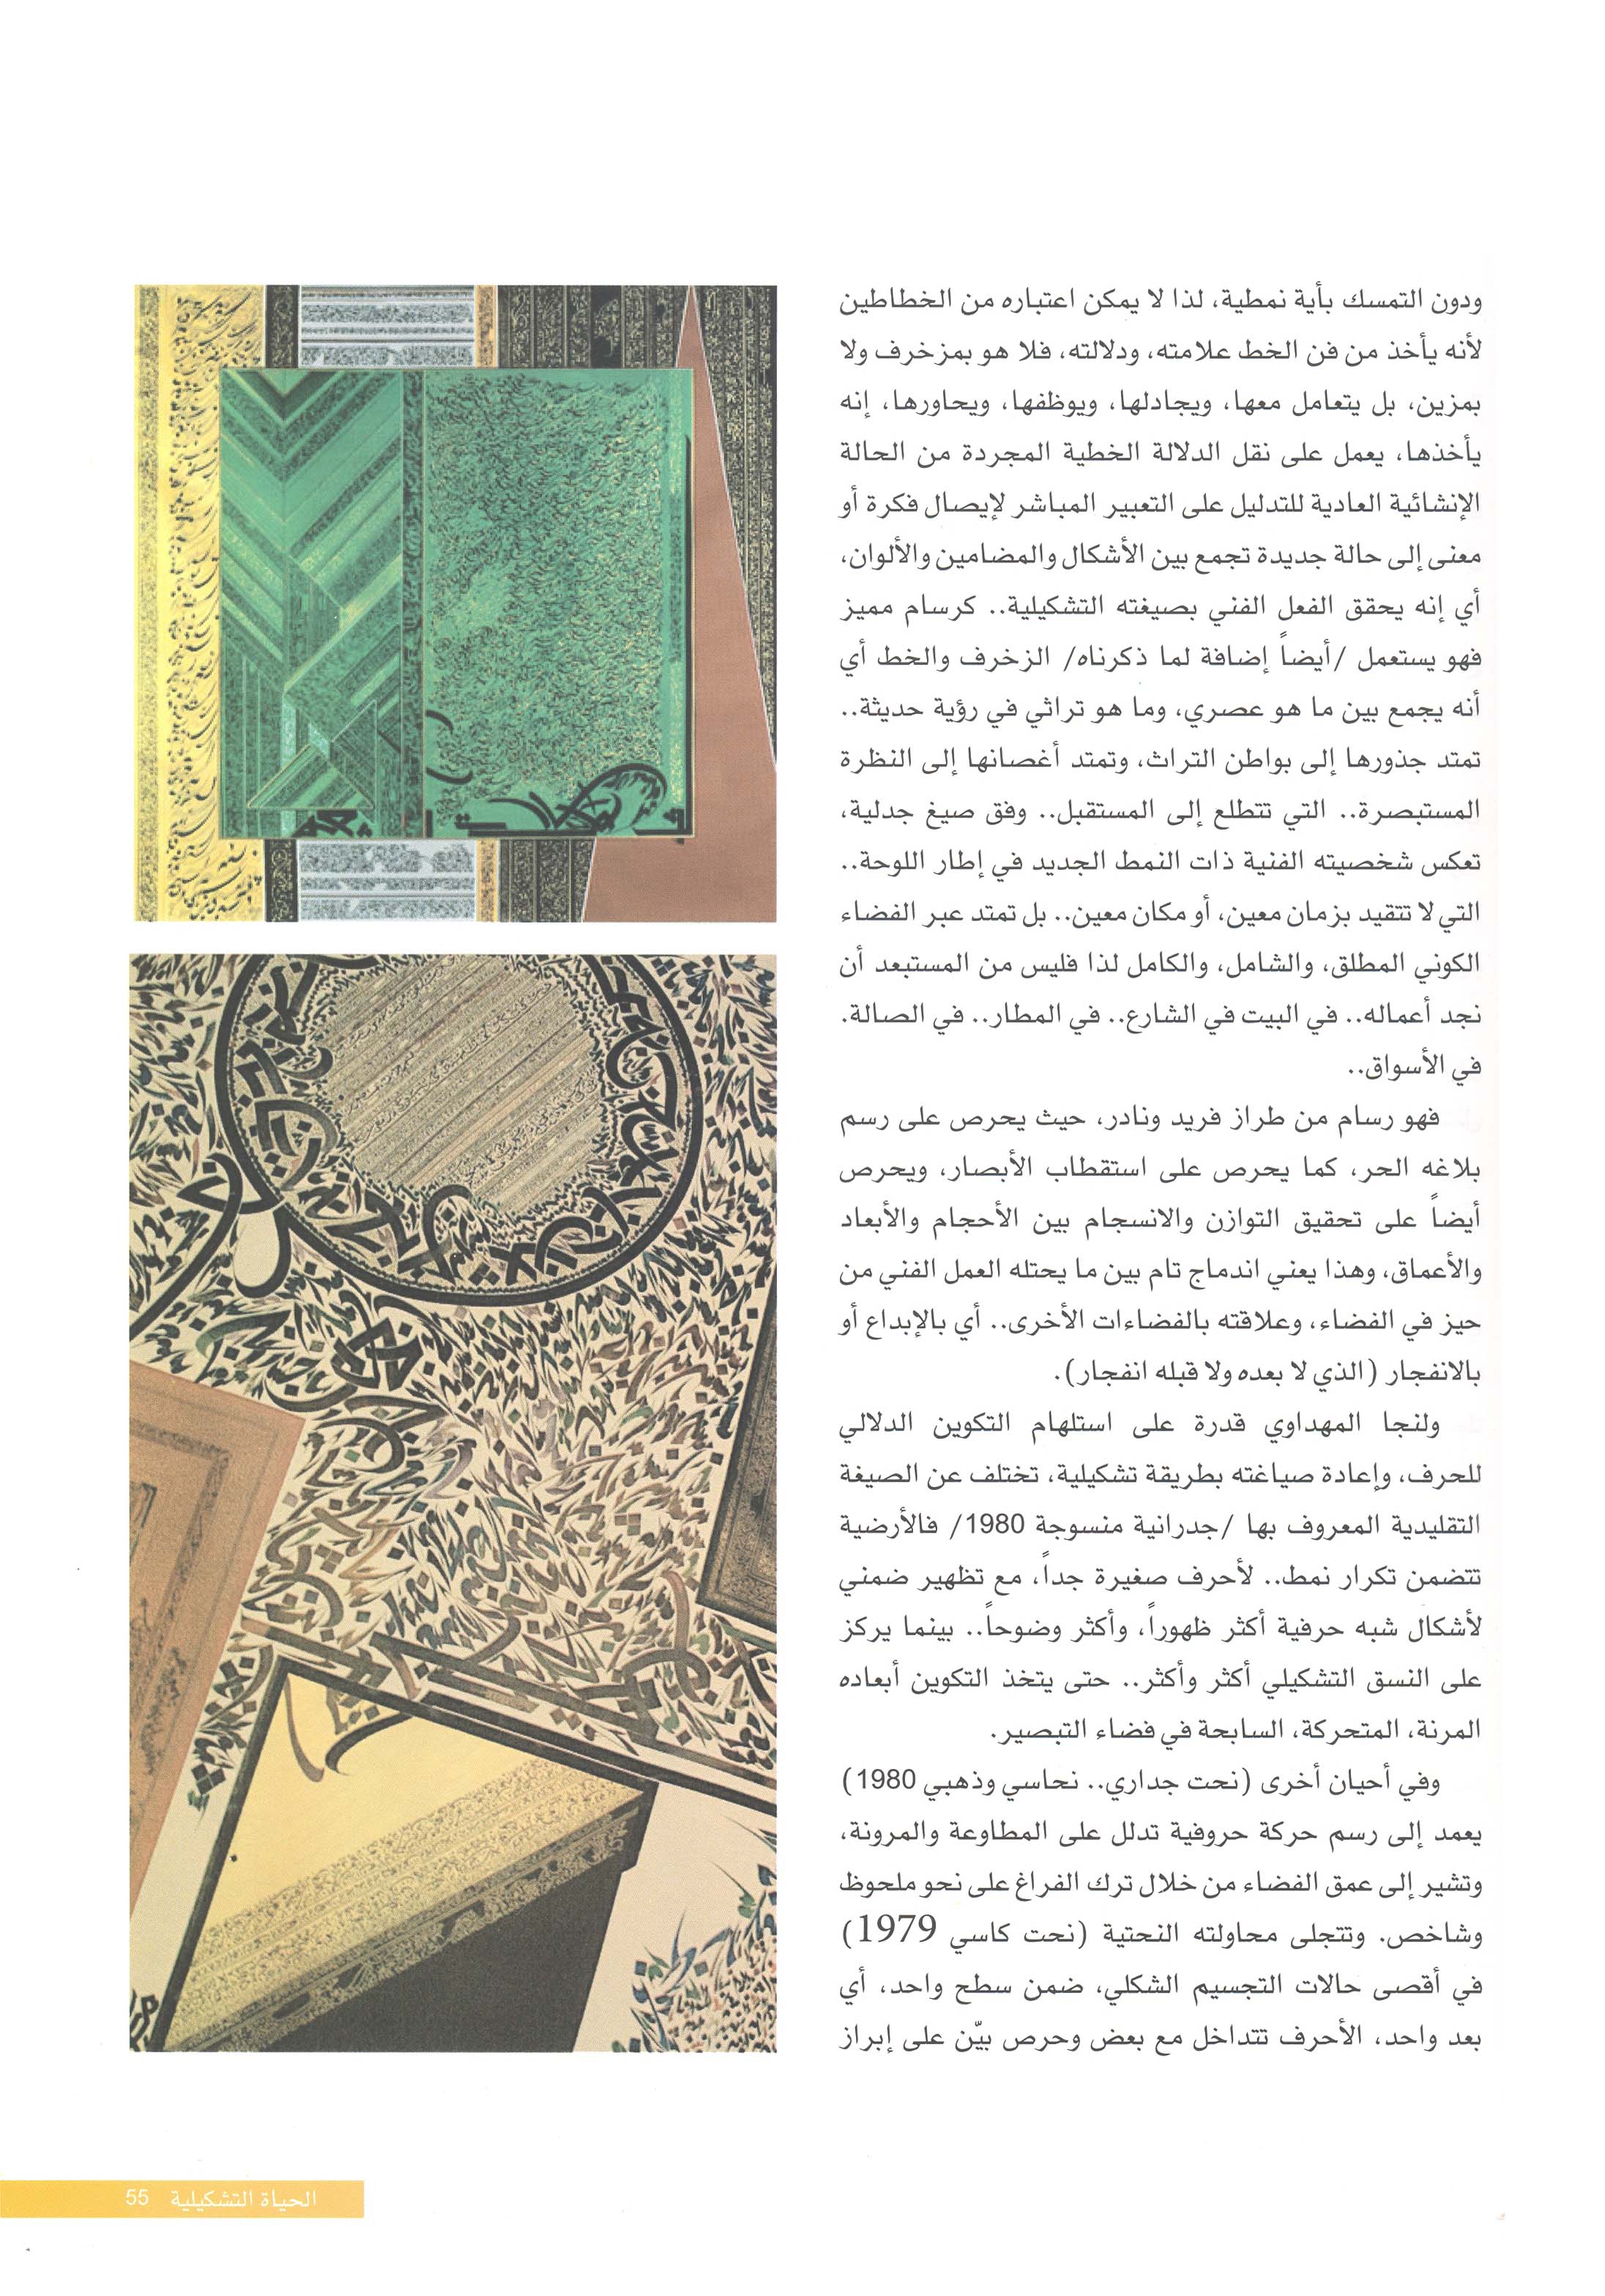 ودون التمسك بأية نمطية، لذا لا يمكن اعتباره من الخطاطين
لأنه يأخذ من فن الخط علامته، ودلالته، فلا هو بمزخرف ولا
بمزين، بل يتعامل معها، ويجادلها، ويوظفها، ويحاورها، إنه
يأخذها، يعمل على نقل الدلالة الخطية المجردة من الحالة
الإنشائية العادية للتدليل على التعبير المباشر لإيصال فكرة أو
معنى إلى حالة جديدة تجمع بين الأشكال والمضامين والألوان،
أي إنه يحقق الفعل الفني بصيغته التشكيلية.. كرسام مميز
فهو يستعمل /أيضاً إضافة لما ذكرناه/ الزخرف والخط أي
أنه يجمع بين ما هو عصري، وما هو تراثي في رؤية حديثة..
تمتد جذورها إلى بواطن التراث، وتمتد أغصانها إلى النظرة
المستبصرة.. التي تتطلع إلى المستقبل.. وفق صيغ جدلية،
تعكس شخصيته الفنية ذات النمط الجديد في إطار اللوحة..
التي لا تتقيد بزمان معين، أو مكان معين.. بل تمتد عبر الفضاء
الكوني المطلق، والشامل، والكامل لذا فليس من المستبعد أن
نجد أعماله.. في البيت في الشارع.. في المطار.. في الصالة.
في الأسواق..
فهو رسام من طراز فريد ونادر، حيث يحرص على رسم
بلاغه الحر، كما يحرص على استقطاب الأبصار، ويحرص
أيضاً على تحقيق التوازن والانسجام بين الأحجام والأبعاد
والأعماق، وهذا يعني اندماج تام بين ما يحتله العمل الفني من
حيز في الفضاء، وعلاقته بالفضاءات الأخرى.. أي بالإبداع أو
بالانفجار (الذي لا بعده ولا قبله انفجار).
ولنجا المهداوي قدرة على استلهام التكوين الدلالي
للحرف، وإعادة صياغته بطريقة تشكيلية، تختلف عن الصيغة
التقليدية المعروف بها /جدرانية منسوجة 1980/ فالأرضية
تتضمن تكرار نمط.. لأحرف صغيرة جداً، مع تظهير ضمني
لأشكال شبه حرفية أكثر ظهوراً، وأكثر وضوحاً.. بينما يركز
على النسق التشكيلي أكثر وأكثر.. حتى يتخذ التكوين أبعاده
المرنة، المتحركة، السابحة في فضاء التبصير.
وفي أحيان أخرى (نحت جداري.. نحاسي وذهبي 1980)
يعمد إلى رسم حركة حروفية تدلل على المطاوعة والمرونة،
وتشير إلى عمق الفضاء من خلال ترك الفراغ على نحو ملحوظ
وشاخص. وتتجلى محاولته النحتية (نحت كاسي 1979)
في أقصى حالات التجسيم الشكلي، ضمن سطح واحد، أي
بعد واحد، الأحرف تتداخل مع بعض وحرص بيّن على إبراز
الحياة التشكيلية 55